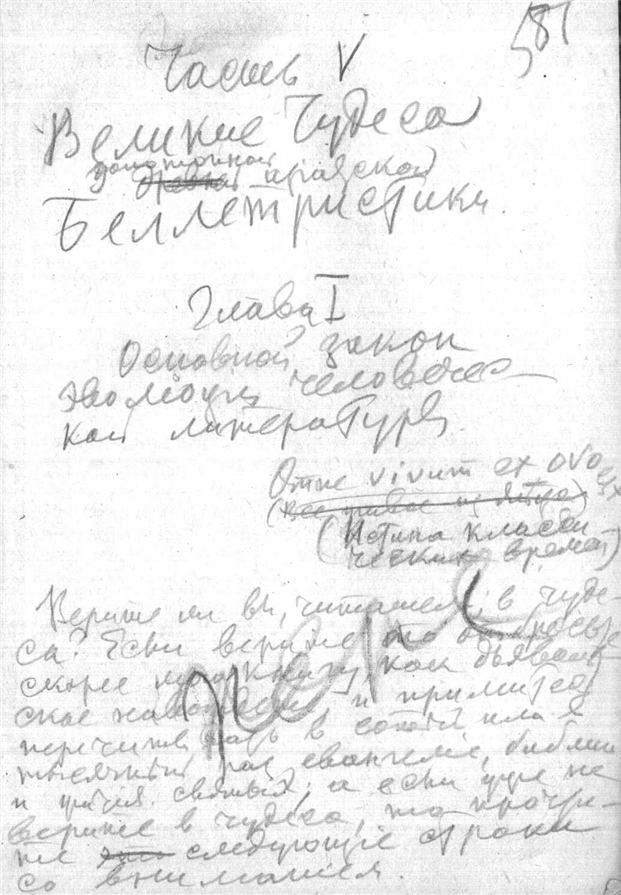 581
Часть V
Великие Чудеса
допотопной
арабской
Беллетристики.
Глава I
Основной закон
эволюции человечес-
кой литературы.
Omne vivum ex ovo
(Все живое из яйца)
(Истина класси
ческих времен)
Верите ли вы, читатель, в чуде-
са? Если верите то отбросьте
скорее книгу, как дьяволь-
ское и примитесь
перечитывать в сотый или в
тысячный раз евангелие, библию
и жития святых, а если уже не
верите в чудеса, то прочти-
те это следующие строки
со вниманием.